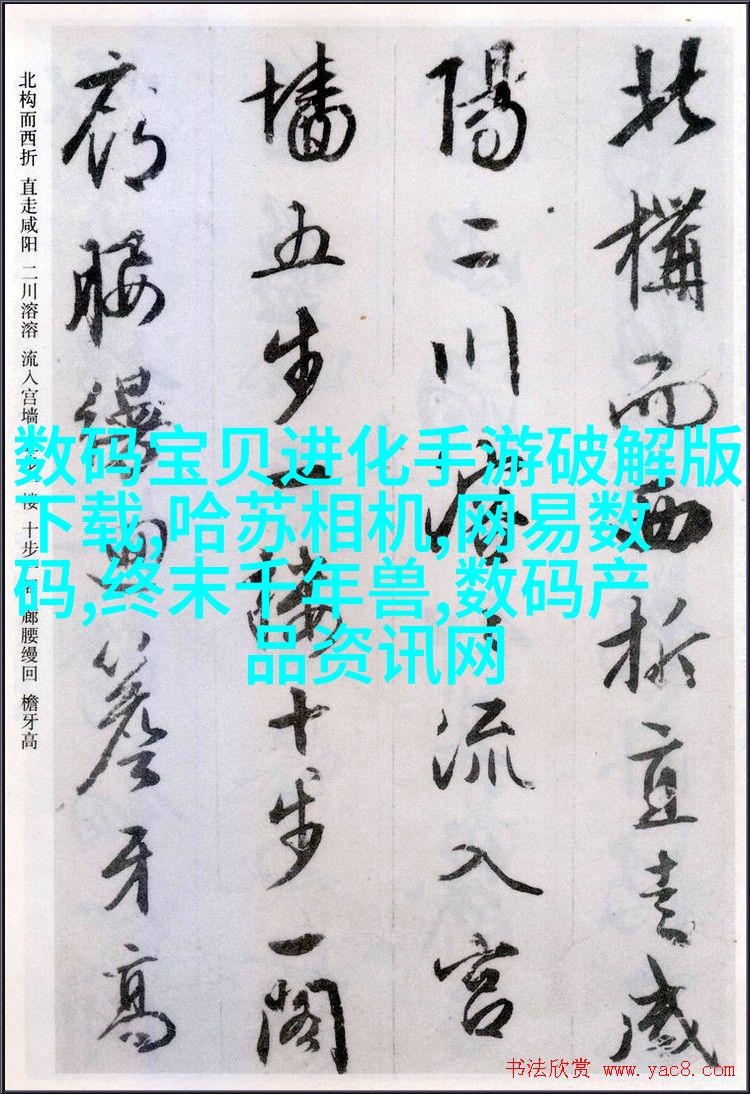 北構而西折直走咸
陽二川溶々流入宫
墻五步一樓十步一閣
廊腰縵迴簷牙高
北构而西折 直走咸阳 二川溶溶 流入宫墙 楼 十步 廊腰缦回 檐牙高
数码宝贝进化手游破解版
下载,哈苏相机,网易数
码,终末千年兽,数码产
品资讯网
书法欣赏 www.yac8.com